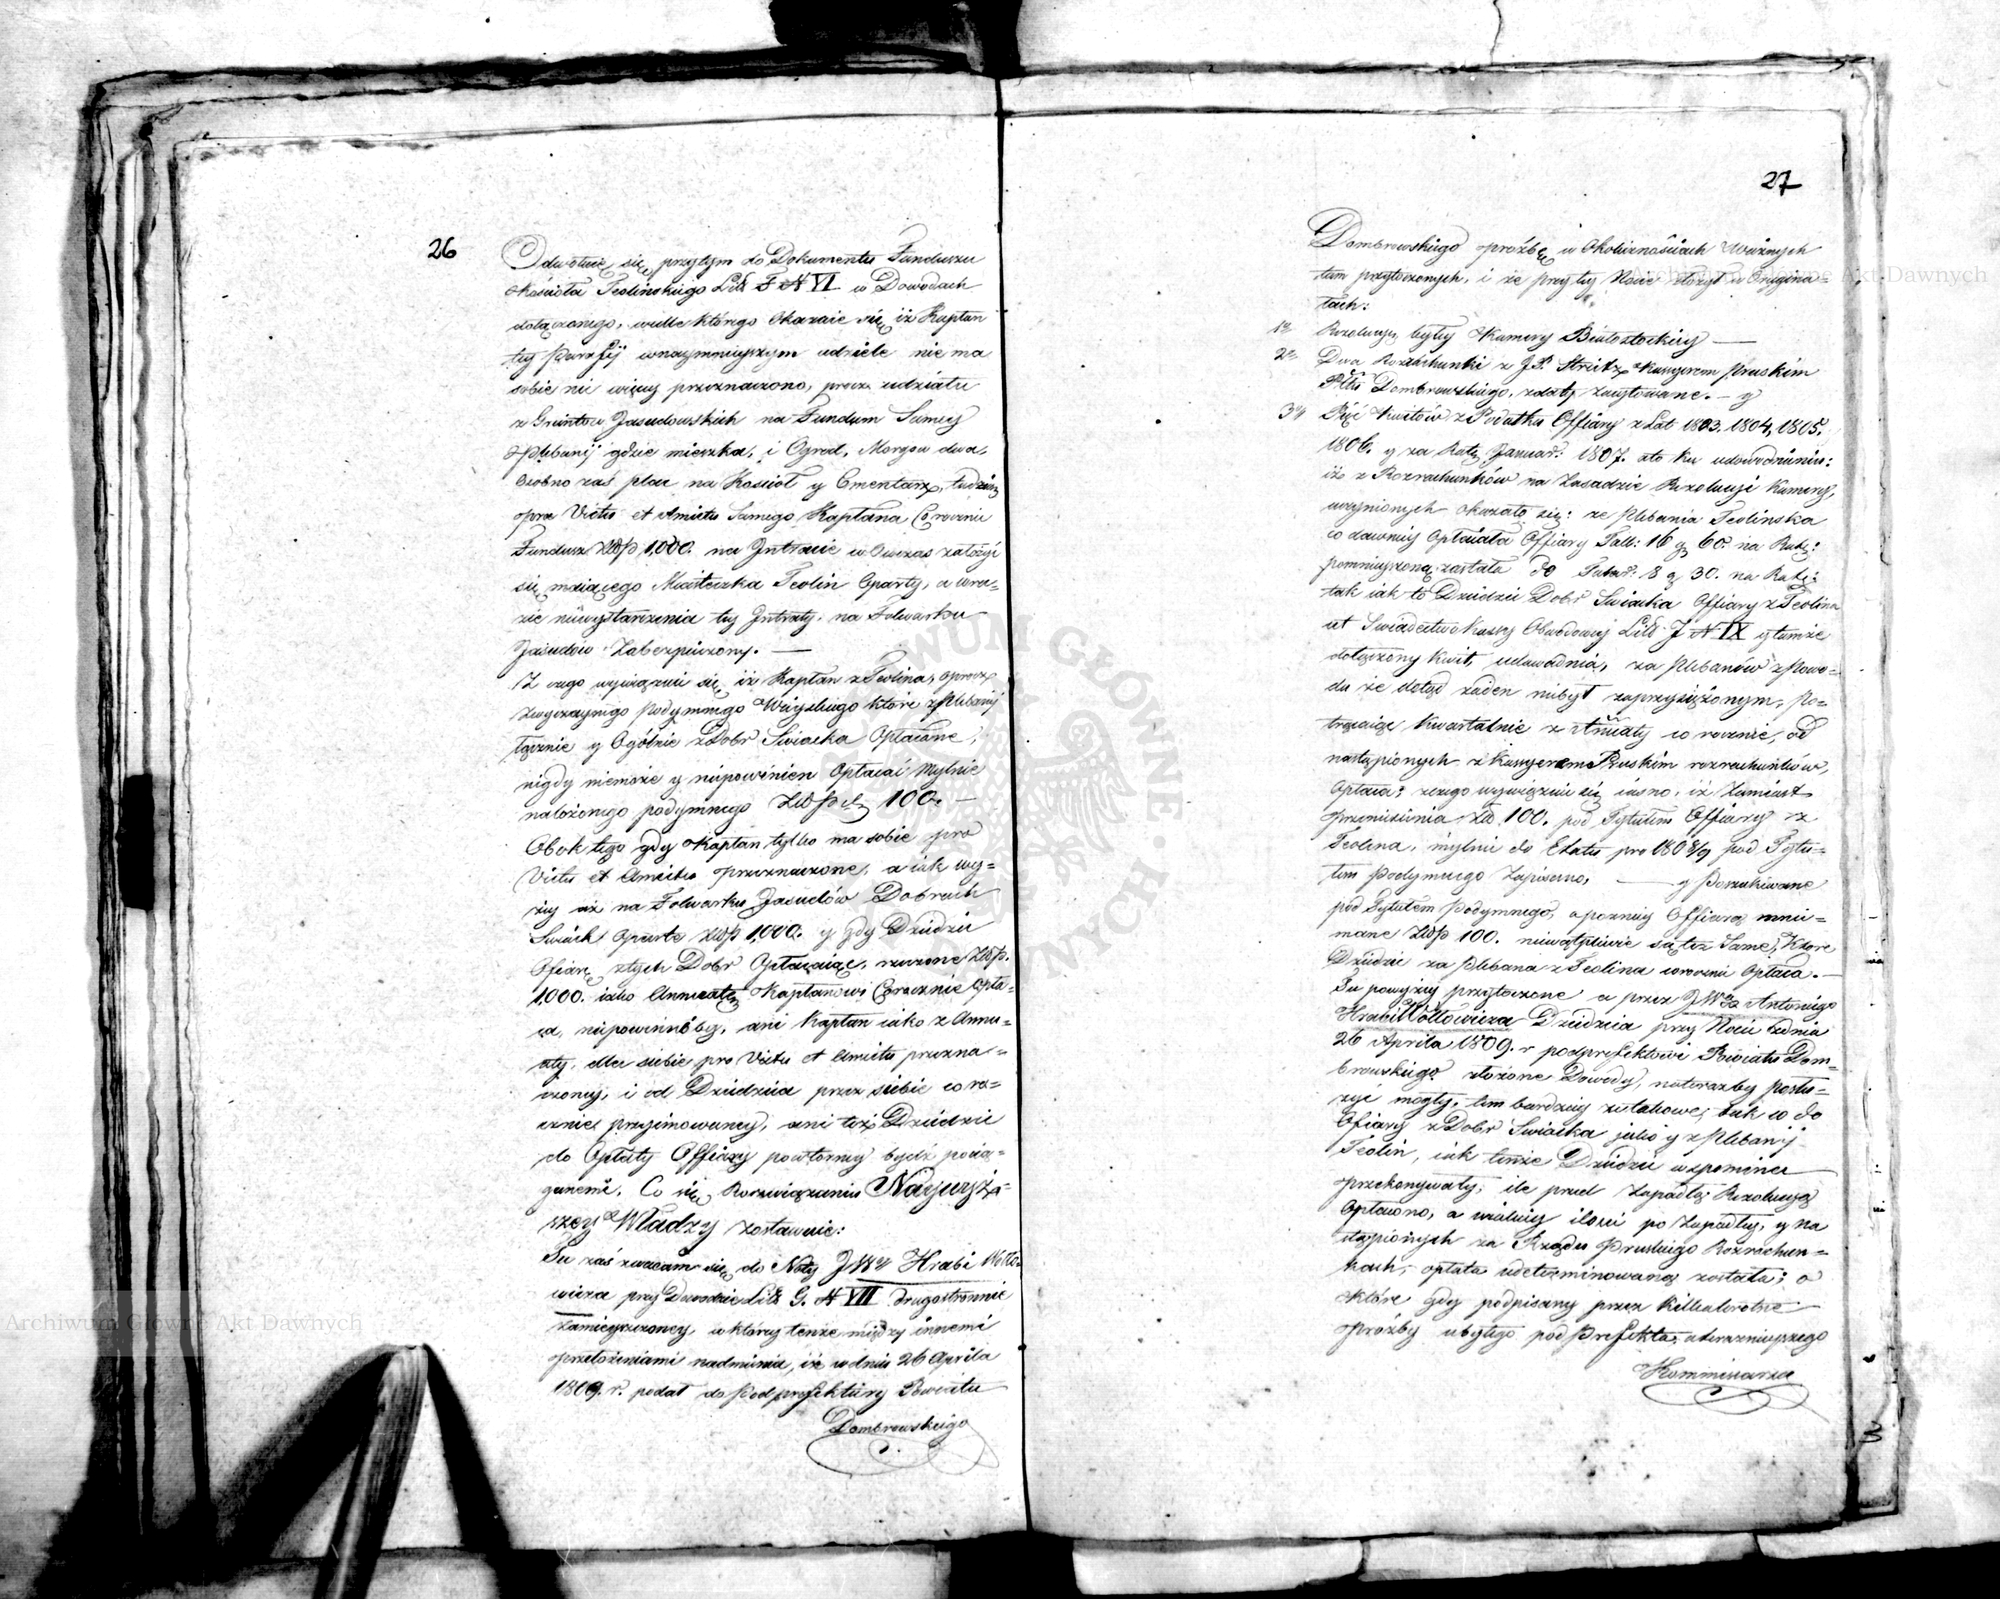 26
Odwołuię się przytym do Dokumentu Funduszu
Kościoła Teolinskiego Litt F N VI w Dowodach
dołączonego, wedle którego okazuie się iż Kapłan
tey Paraffij w naymnieyszym udziele nie ma
sobie nic więcey przeznaczono, procz udziału
z Gruntow Jasudowskich na Fundum Samey
Plebanij gdzie mieszka, i Ogrod, Morgow dwa,
Osobno zaś plac na Kosciół y Cmentarz, tudzież
pro Victu et Amictu Samego Kapłana Corocznie
Fundusz Złłp 1,000. na Jntracie w Owczas założyć
się maiącego Miasteczka Teolin Oparty, a wra-
zie niewystarczenia tey Jntraty, na Folwarku
Jasudow Zabezpieczony. —
Z czego wywiązuie się iż Kapłan z Teolina, oprocz
zwyczaynego podymnego Wieyskiego które z Plebanij
łącznie y Ogólnie z Dobr Swiacka Opłacane,
nigdy niemoże y niepowinien Opłacać Mylnie
nałożonego podymnego Złłp 100. —
Obok tego gdy Kapłan tylko ma sobie pro
Victu et Amictu przeznaczone, a iak wy-
żey aż na Folwarku Jasudów Dobrach
Swiack Oparte Złłp 1,000. y gdy Dziedzic
Ofiarę z tych Dobr Opłacaiąc, rzeczone Złłp.
1,000. iako Annuatę Kapłanowi Corocznie opła-
ca, niepowinnoby, ani Kapłan iako z Annu-
aty, dla siebie pro Victu et Amictu przezna-
czoney, i od Dziedzica przez siebie co ro-
cznie przyimowaney, ani też Dziedzic
do Opłaty Offiary powtorney bydź pocią-
ganemi. Co się Rozwiązaniu Naywyż-
szey Władzy zostawuie:
Tu zaś zwracam się do Noty JWgo Hrabi Wołło-
wicza przy Dowodzie Litt G. N VII drugostronnie
zamieszczoney, w którey tenże między innemi
przełożeniami nadmienia, iż w dniu 26 Aprila
1809. r. podał do Podprefektury Powiatu
Dombrowskiego
27
Dombrowskiego prożbę w Okolicznościach Ważnych
tam przytoczonych, i że przy tey Nocie złożył w Orygina-
łach:
1o Rezolucyą byłey Kamery Białostockiey —
2o Dwa Rozrachunki z J.P. Streitz Kassyerem Pruskim
Pttu Dombrowskiego, zdatą zaświtowane. — y
3o Pięć Kwitów z Podatku Offiary z Lat 1803. 1804, 1805.
1806. y za Ratę Januar: 1807. ato ku udowodnieniu:
iż z Rozrachunków na Zasadzie Rezolucji Kamery,
uczynionych okazało się: że Plebania Teolinska
co dawniey Opłacała Offiary Tall: 16 g 60. na Ratę:
pomnieyszoną została do Talar: 8 g 30. na Ratę:
tak iak to Dziedzic Dobr Swiacka Offiary z Teolina
ut Swiadectwo Kassy Obwodowey Litt J N IX y tamże
dołączony Kwit, udowadnia, za Plebanów z Powo-
du że dotąd żaden niebył zaprzysiężonym, Po-
trącaiąc Kwartalnie z Annuaty co rocznie, od
nastąpionych z Kassyerem Pruskim rozrachunków,
Opłaca; zczego wywiązuie się iasno, iż Zamiast
przeniesienia Złł. 100. pod Tytułem Offiary z
Teolina, mylnie do Etatu pro 1808/9 pod Tytu-
łem Podymnego Zapisano, — y Poszukiwane
pod Tytułem Podymnego, apozniey Offiara mnie-
mane Złłp 100. niewątpliwie są też Same, Które
Dziedzic za Plebana z Teolina corocznie Opłaca. —
Tu powyżey przytoczone a przez JWgo Antoniego
Hrabi Wołłowicza Dziedzica przy Nocie z dnia
26 Aprila 1809. r podprefektowi Powiatu Dom-
browskiego złożone Dowody, natorazby posłu-
żyć mogły, tem bardziey zutakowe, tak co do
Ofiary z Dobr Swiacka jako y z Plebanij
Teolin, iak tenże Dziedzic wspomina
przekonywały, ile przed Zapadłą Rezolucyą
Opłacono, a wiakiey ilosci po Zapadłey, y na-
stąpionych za Rządu Pruskiego Rozrachun-
kach, opłata udeterminowaną została; o
które gdy podpisany przez kilkakrotne
prożby ubyłego podPrefekta, a teraznieyszego
Kommissarza